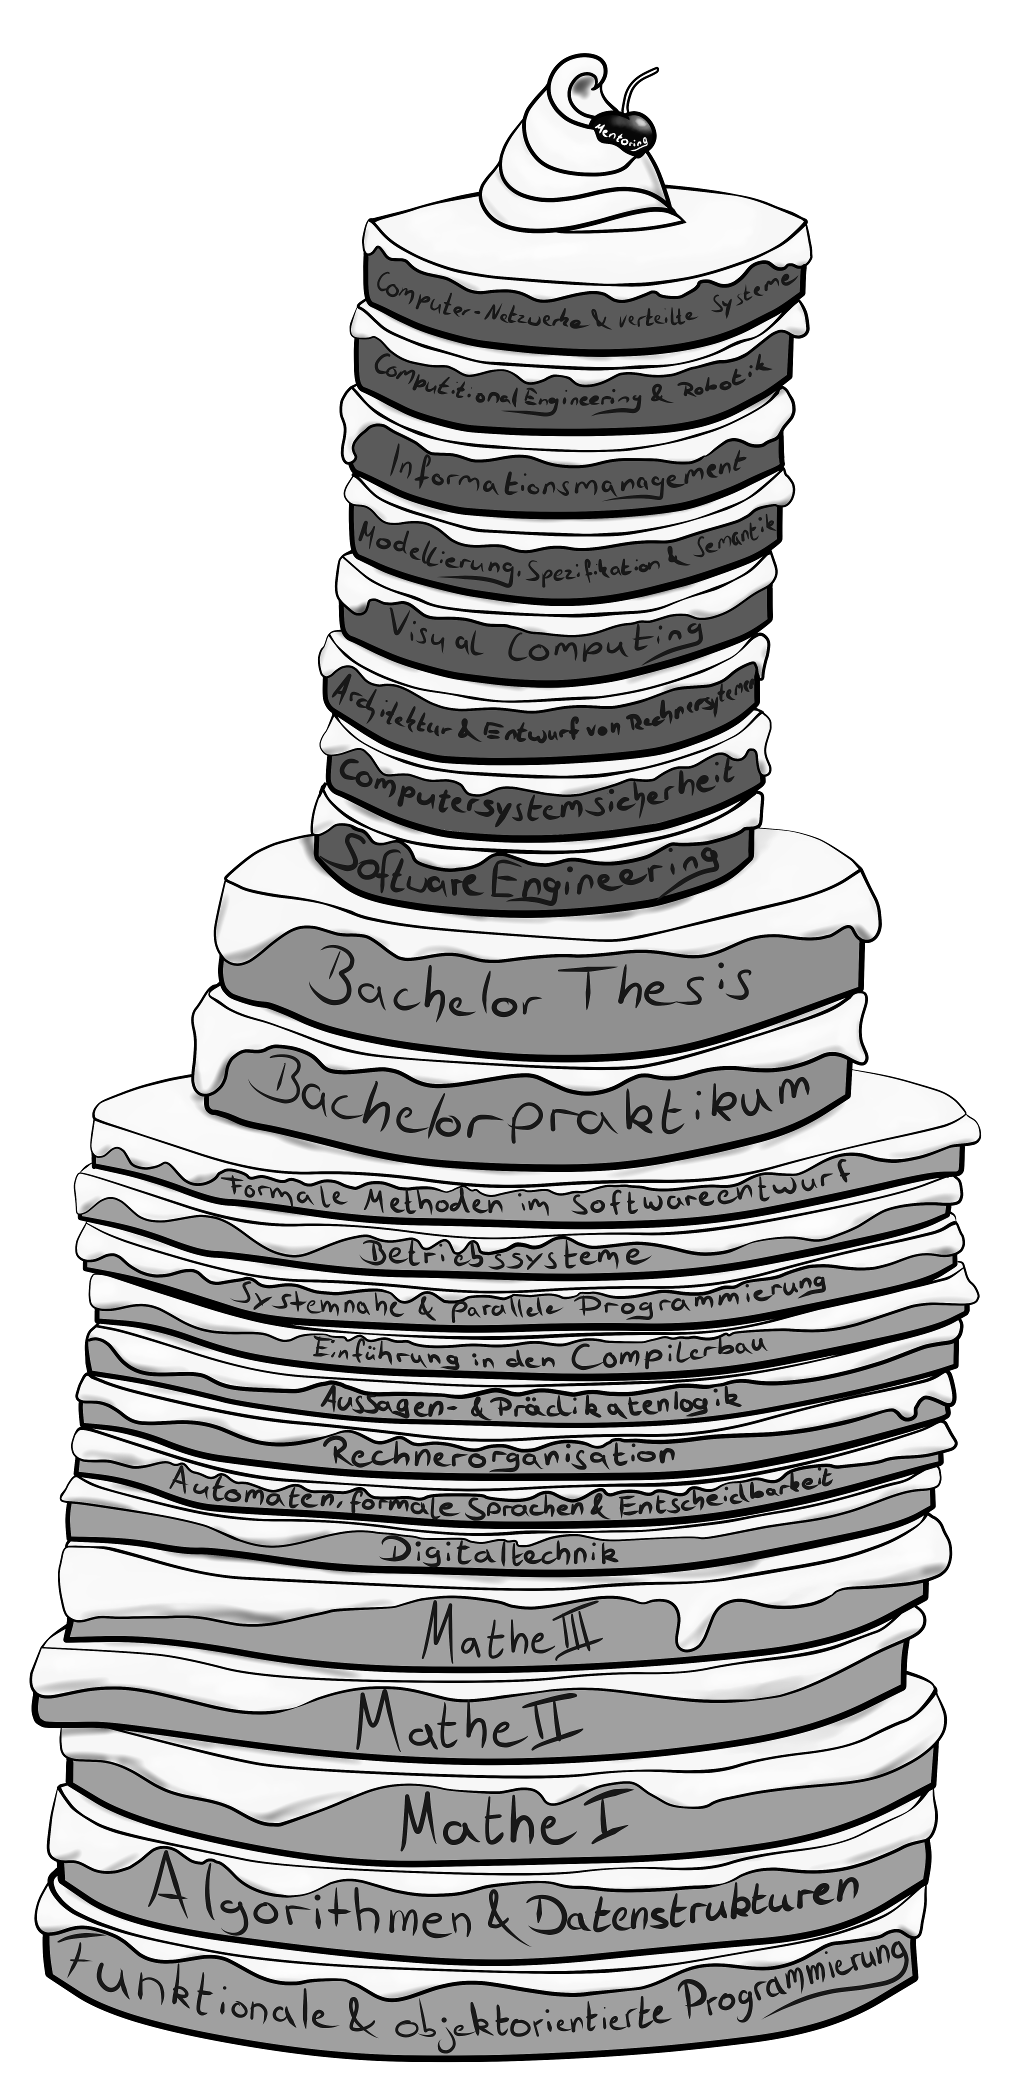 Mentoring
Computer-Netzwerke & verteilte Systeme
Computitional Engineering & Robotik
Informationsmanagement
Modellierung, Spezifikation & Semantik
Visual Computing
Architektur & Entwurf von Rechnersytemen
Computersystemsicherheit
Software Engineering
Bachelor Thesis
Bachelorpraktikum
Formale Methoden im Softwareentwurf
Betriebssysteme
Systemnahe & parallele Programmierung
Einführung in den Compilerbau
Aussagen- & Prädikatenlogik
Rechnerorganisation
Automaten, formale Sprachen & Entscheidbarkeit
Digitaltechnik
Mathe III
Mathe II
Mathe I
Algorithmen & Datenstrukturen
Funktionale & objektorientierte Programmierung